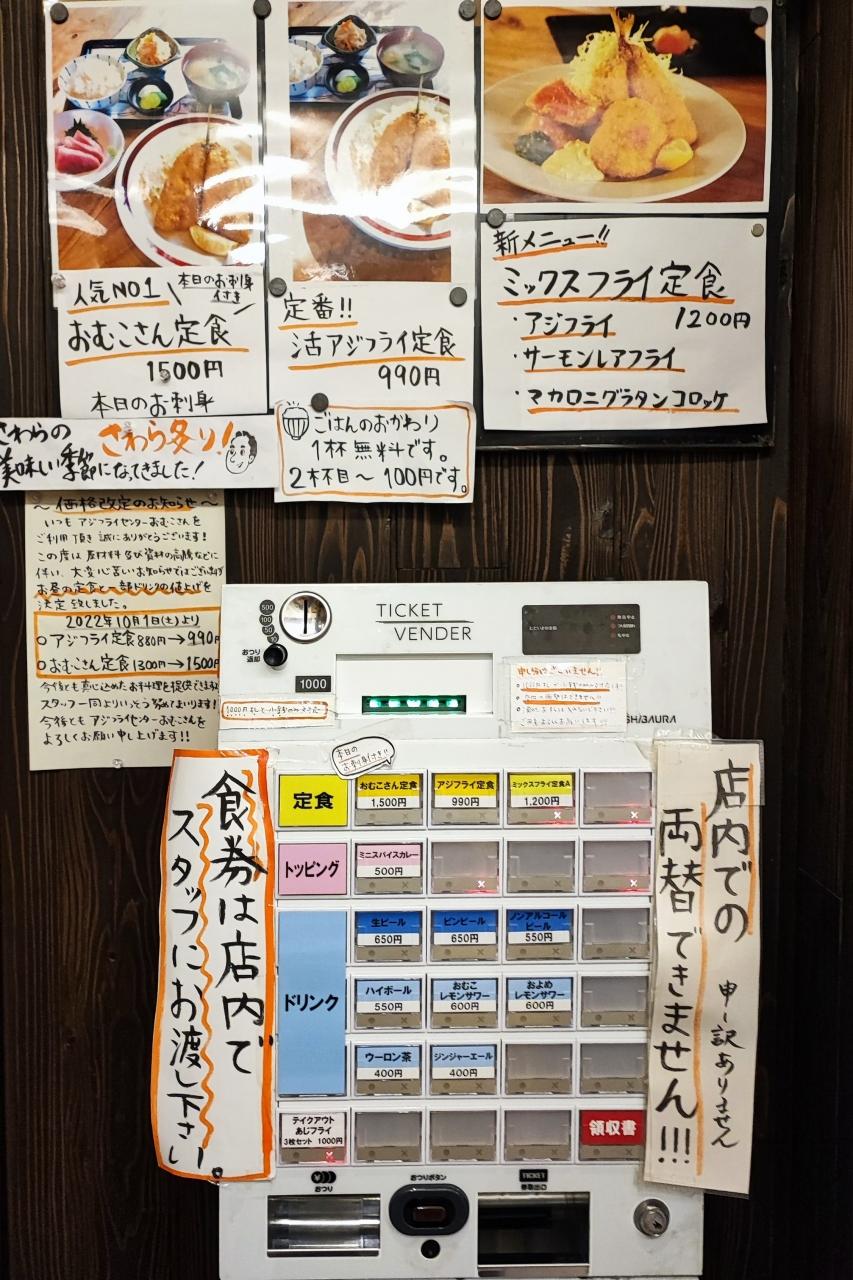 人気NO1
本日のお刺身
付き
おむこさん定食
1500円
本日のお刺身
定番!!
活アジフライ定食
990円
新メニュー!!
ミックスフライ定食
・アジフライ 1200円
・サーモンレアフライ
・マカロニグラタンコロッケ
さわらの さわら炙り!
美味しい季節になってきました!
ごはんのおかわり
1杯無料です。
2杯目～100円です。
～価格改定のお知らせ～
いつもアジフライセンターおむこさんを
ご利用頂き誠にありがとうございます!
この度は原材料及び資材の高騰などに
伴い、大変心苦しいお知らせではございますが
お昼の定食と一部ドリンクの値上げを
決定致しました。
2022年10月1日(土)より
○アジフライ定食880円→990円
○おむこさん定食1300円→1500円
今後とも真心込めたお料理を提供できる様
スタッフ一同よりいっそう努めてまいります!
今後ともアジフライセンターおむこさんを
よろしくお願い申し上げます!!
500
100
50
10
おつり
返却
TICKET
VENDER
1000
申し訳ございません!!
SHIBAURA
本日の
お刺身付き!!
定食
おむこさん定食
1,500円
アジフライ定食
990円
ミックスフライ定食A
1,200円
トッピング
ミニスパイスカレー
500円
ドリンク
生ビール
650円
ビンビール
650円
ノンアルコール
ビール
550円
ハイボール
550円
おむこ
レモンサワー
600円
およめ
レモンサワー
600円
ウーロン茶
400円
ジンジャーエール
400円
テイクアウト
あじフライ
3枚セット 1000円
領収書
おつり
おつりボタン
TICKET
券取出口
食券は店内で
スタッフにお渡し下さい。
店内での
両替できません!!!
申し訳ありません